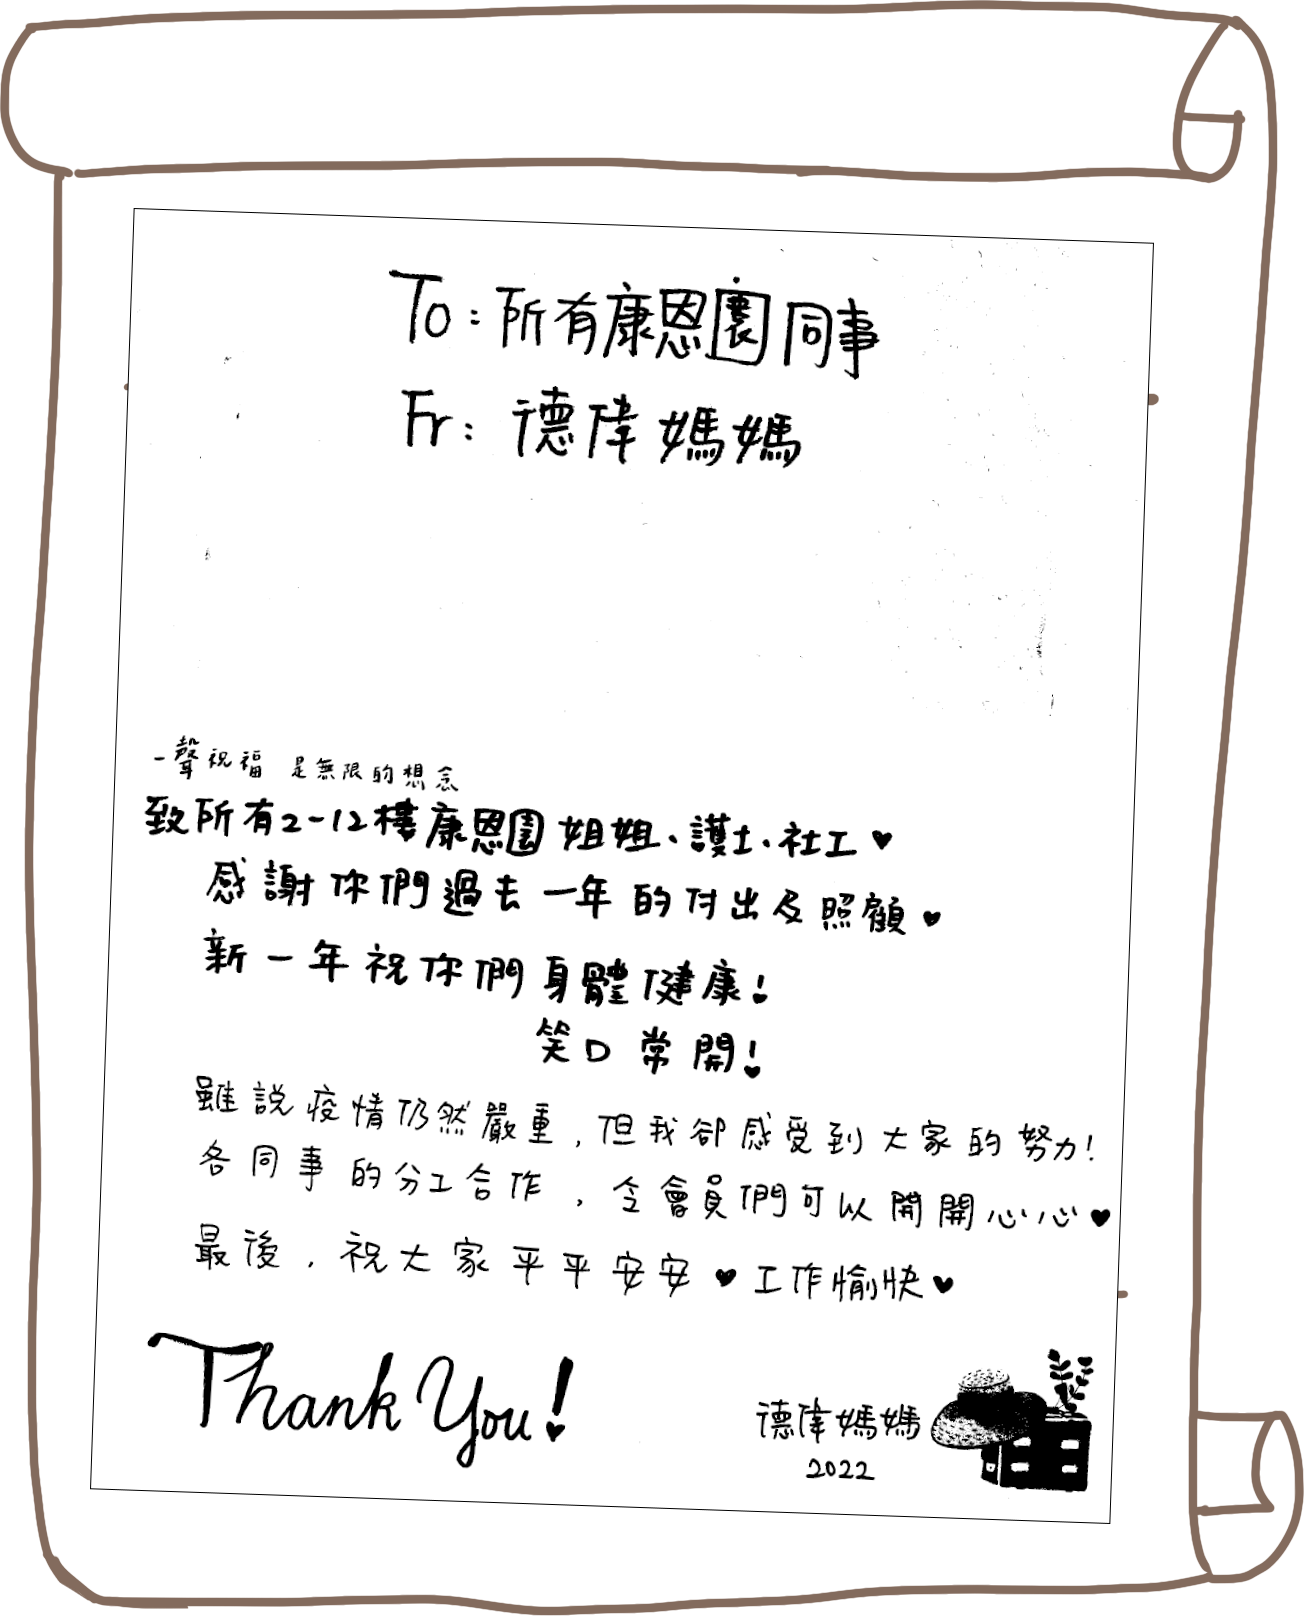 To：所有康恩園同事
Fr：德偉媽媽
一聲祝福 是無限的想念
致所有2-12樓康恩園姐姐、護士、社工♥
感謝你們過去一年的付出及照顧♥
新一年祝你們身體健康！
笑口常開！
雖說疫情仍然嚴重，但我卻感受到大家的努力！
各同事的分工合作，令會員們可以開開心心♥
最後，祝大家平平安安♥工作愉快♥
Thank You!
德偉媽媽
2022